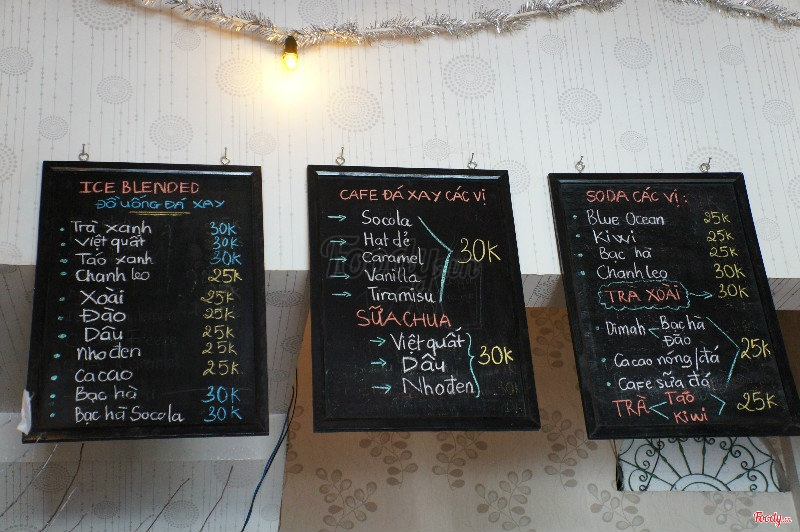 ICE BLENDED
ĐỒ UỐNG ĐÁ XAY
Trà xanh 30K
Việt quất 30K
Táo xanh 30K
Chanh leo 25K
Xoài 25K
Đào 25K
Dâu 25K
Nho đen 25K
Cacao 25K
Bạc hà 30K
Bạc hà Socola 30K
CAFE ĐÁ XAY CÁC VỊ
Socola
Hạt dẻ
Caramel 30K
Vanilla
Tiramisu
SỮA CHUA
Việt quất
Dâu 30K
Nho đen
SODA CÁC VỊ:
Blue Ocean 25K
Kiwi 25K
Bạc hà 25K
Chanh leo 30K
TRÀ XOÀI 30K
Dimah Bạc hà
Đào
Cacao nóng/đá 25K
Cafe sữa đá
TRÀ Táo 25K
Kiwi
Foody.vn
Foody.vn